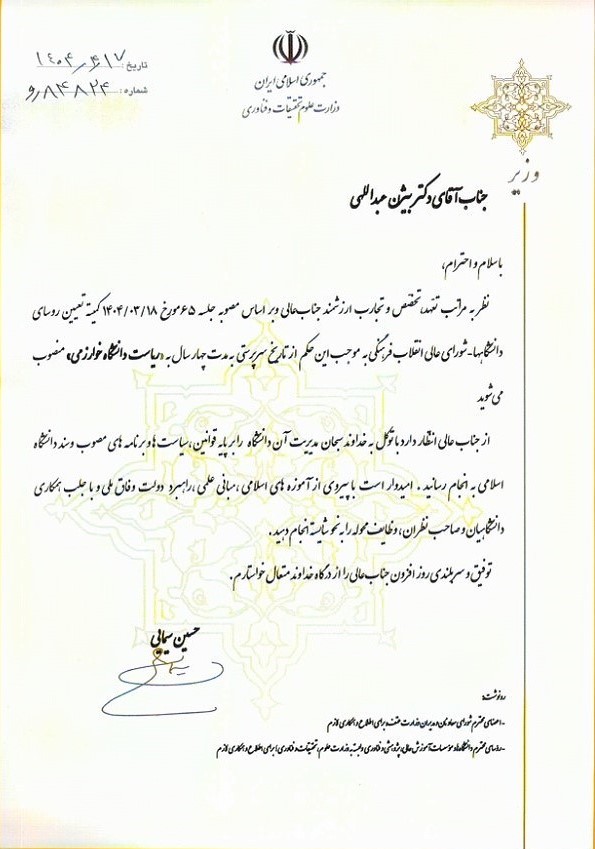 جمهوری اسلامی ایران
وزارت علوم تحقیقات و فناوری
تاریخ: ۱۴۰۴/۴/۱۷
شماره: ۸۴۸۲۴/و
وزیر
جناب آقای دکتر بیژن عبداللهی
با سلام و احترام،
نظر به مراتب تعهد، تخصص و تجارب ارزشمند جنابعالی و بر اساس مصوبه جلسه ۶۵ مورخ ۱۴۰۴/۰۳/۱۸ کمیته تعیین روسای
دانشگاهها-شورای عالی انقلاب فرهنگی به موجب این حکم از تاریخ سرپرستی به مدت چهار سال به «ریاست دانشگاه خوارزمی» منصوب
می شوید
از جناب عالی انتظار دارد با توکل به خداوند سبحان مدیریت آن دانشگاه را بر پایه قوانین، سیاست ها و برنامه های مصوب و سند دانشگاه
اسلامی به انجام رسانید. امیدوار است با پیروی از آموزه های اسلامی، مبانی علمی، راهبرد دولت وفاق ملی و با جلب همکاری
دانشگاهیان و صاحب نظران، وظایف محوله را به نحو شایسته انجام دهید.
توفیق و سربلندی روز افزون جناب عالی را از درگاه خداوند متعال خواستارم.
حسین سیمایی
رونوشت:
-اعضای محترم شورای معاونان و مدیران وزارت متبوع برای اطلاع و همکاری لازم
-روسای محترم دانشگاه‌ها و موسسات آموزش عالی، پژوهشی و فناوری وابسته به وزارت علوم، تحقیقات و فناوری؛ برای اطلاع و همکاری لازم